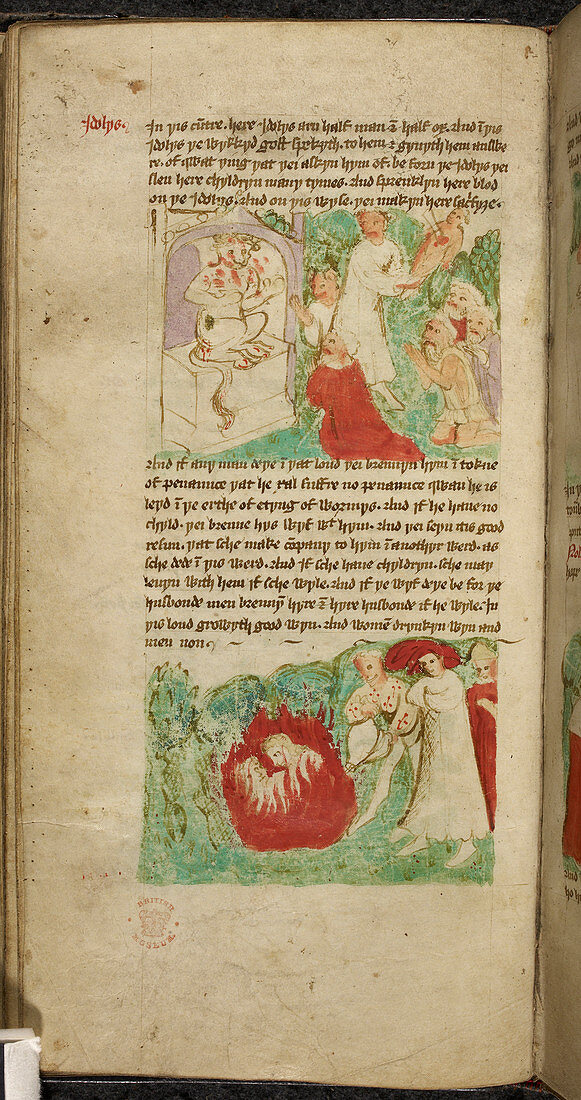 Idolys
In yis cūtre. here Idolys arn half man & half ox. And ī yis
Idolys ye wykkyd gost spekyth. to hem & gyuyth hem answe
re. of qwat yīg yat yei askyn hym of. be forn ye Idolys yei
slen here chyldryn many tymes. And sprenklyn here blod
on ye Idolys. And on yis wyse. yei makyn here sacfyse.
And if any man deye ī yat lond yei brennyn hym ī tokne
of penaunce yat he sal suffre no penaunce qwan he is
leyd ī ye erthe of etyng of wormys. And if he haue no
chyld. yei brenne hys wyf wt hym. And yei seyn it is good
resun. yat sche make cōpany to hym ī anothyr werd. as
sche dede ī yis werd. And if sche haue chyldryn. sche may
leuyn with hem if sche wyle. And if ye wyf deye be for ye
husbonde men brennyn hyre & hyre husbonde if he wyle. In
yis lond growyth good wyn. And womē drynkyn wyn and
men non.
BRITISH
MUSEUM